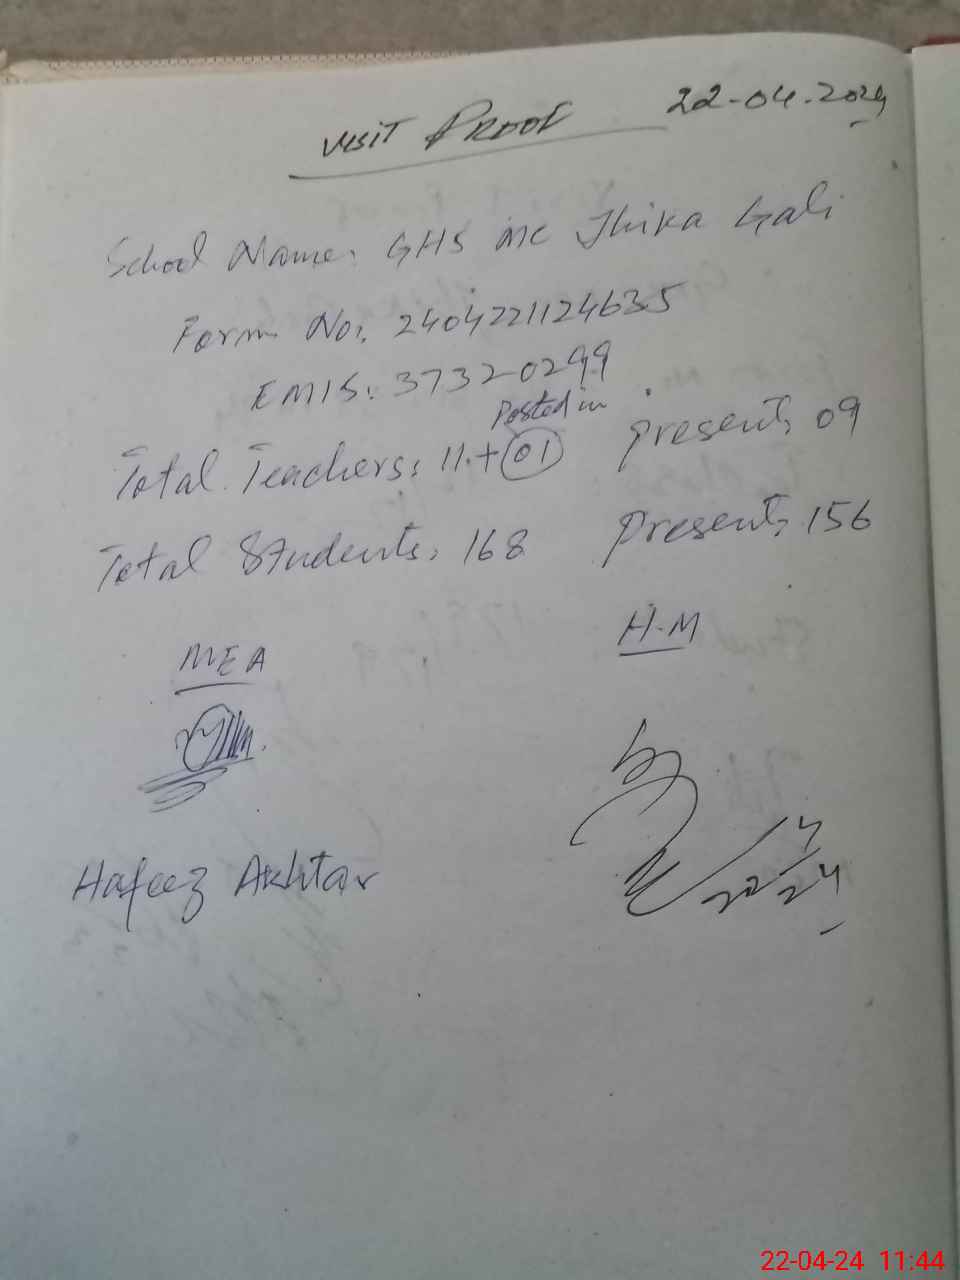 VISIT PROOF 22-04-2024
School Name: GHS MC Jhika Gali
Form No: 2404221124635
EMIS: 37320299
Posted in
Total Teachers: 11+01 present: 09
Total Students: 168 Present: 156
MEA H.M
Hafeez Akhtar
22/4/24
22-04-24 11:44